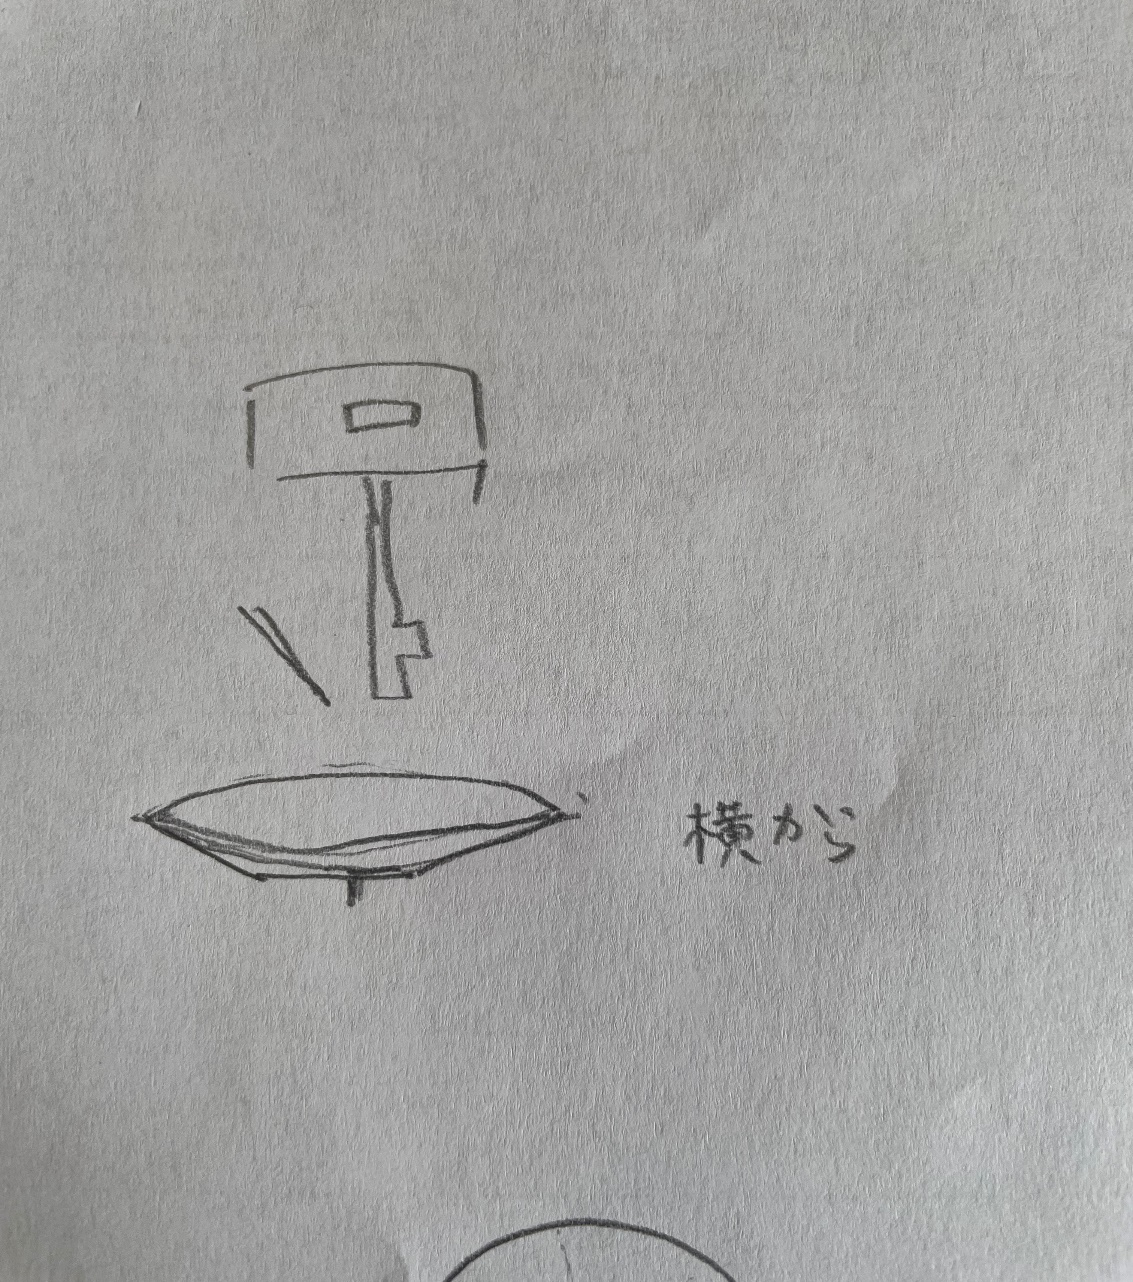 横から